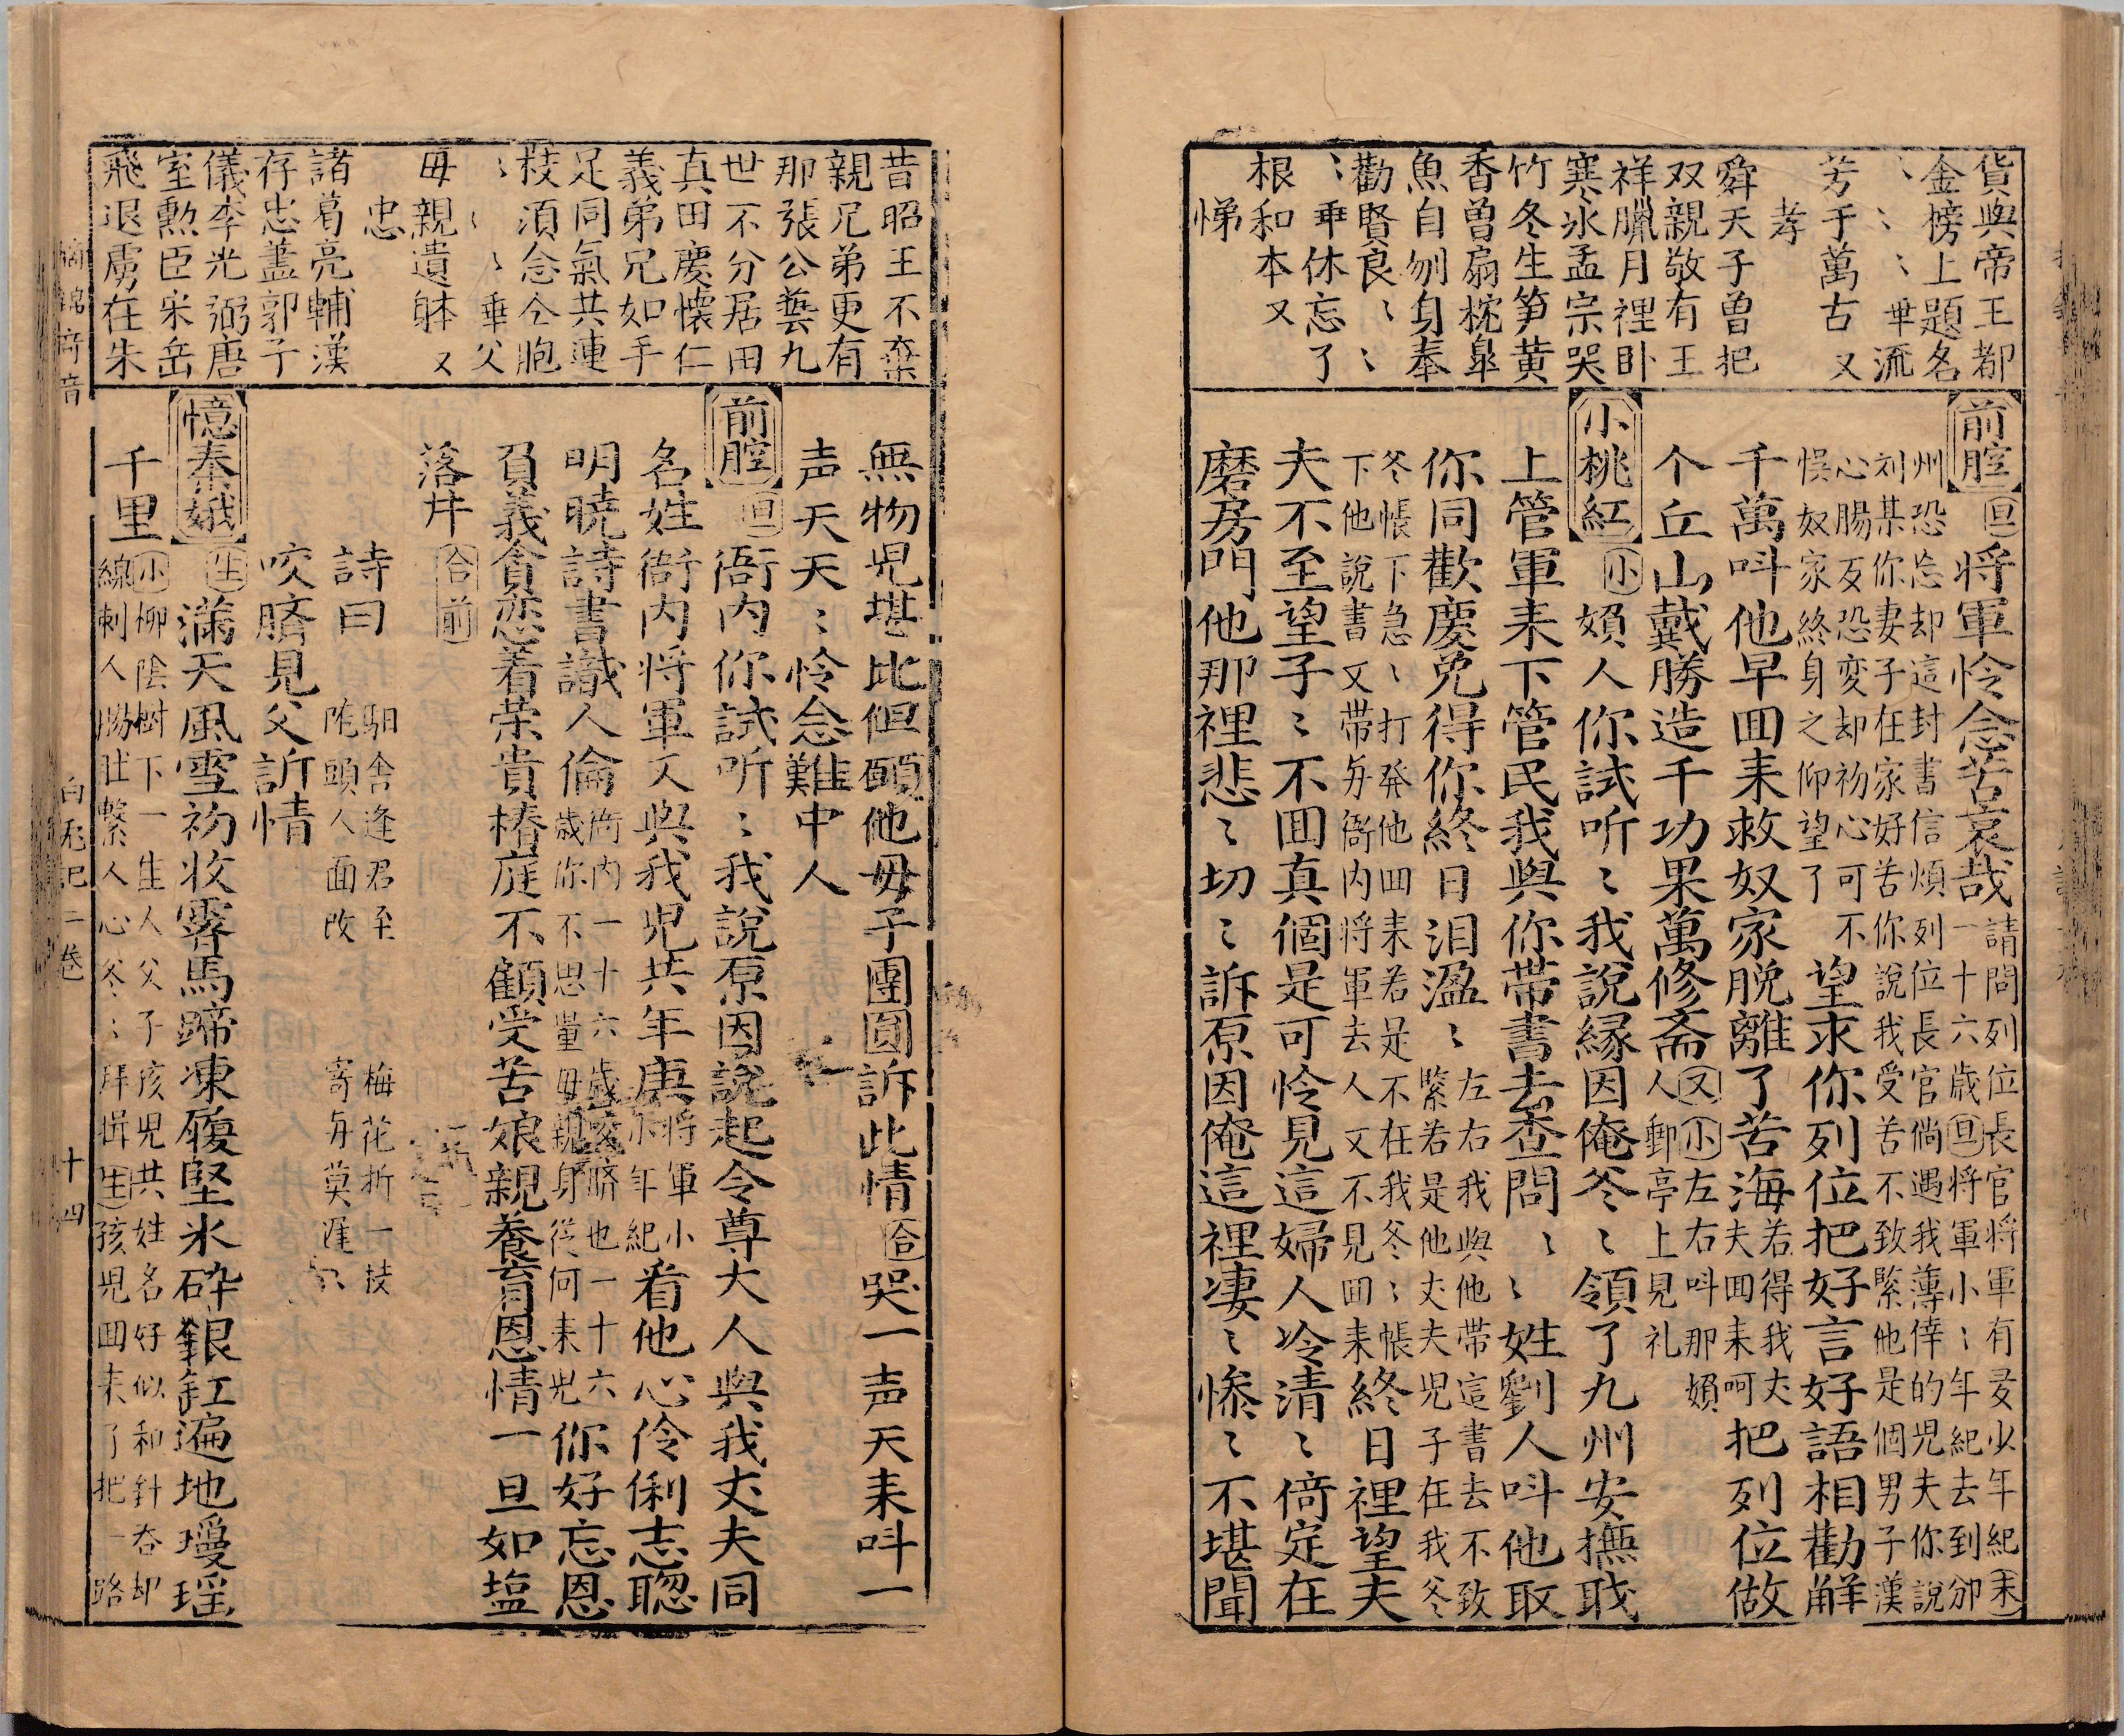 貨與帝王都
金榜上題名
〻〻〻垂流
芳千萬古又
孝
舜天子曾把
双親敬有王
祥臘月裡卧
寒氷孟宗哭
竹冬生笋黄
香曾扇枕臯
魚自刎身奉
勸賢良〻〻
〻垂休忘了
根和本又
悌
前腔
旦
将軍怜念苦哀哉
請問列位長官将軍有多少年紀
末
一十六歳
旦
将軍小〻年紀去到邠
州恐忘却這封書信煩列位長官倘遇我薄倖的児夫你說
刘某你妻子在家好苦你說我受苦不致緊他是個男子漢
心腸反恐变却初心可不
悮奴家終身之仰望了
望求你列位把好言好語相勸觧
千萬呌他早囬来救奴家脱離了苦海
若得我丈
夫囬来呵
把列位做
个丘山戴勝造千功果萬修斋
又
小
左右呌那嬪
人郵亭上見礼
小桃紅
小
嬪人你試听〻我說縁因俺爹〻領了九州安撫戝
上管軍来下管民我與你帶書去查問〻〻姓劉人呌他取
你同歡慶免得你終日泪盈〻
左右我與他帶這書去不致
緊若是他丈夫児子在我爹
冬帳下急〻打発他囬来若是不在我爹〻帳
下他說書又帶与衙内将軍去人又不見囬来
終日裡望夫
夫不至望子〻不囬真個是可怜見這婦人冷清〻倚定在
磨房門他那裡悲〻切〻訴原因俺這裡凄〻慘〻不堪聞
昔昭王不棄
親兄弟更有
那張公藝九
世不分居田
真田慶懐仁
義弟兄如手
足同氣共連
枝須念仝胞
〻〻〻垂父
毋親遺躰又
忠
諸葛亮輔漢
存忠藎郭子
儀李光弼唐
室勲臣宋岳
飛退虜在朱
無物児堪比但願他毋子團圓訴此情
合
哭一声天来呌一
声天天〻怜念難中人
前腔
旦
衙内你試听〻我說原因說起令尊大人與我丈夫同
名姓衙内将軍又與我児共年庚
将軍小
小年紀
看他心伶俐志聦
明曉詩書識人倫
衙内一十六歳咬臍也一十六
歳你不思量毋親身從何来児
你好忘恩
負義貪恋着荣貴椿庭不顧受苦娘親養育恩情一旦如塩
落井
合前
詩曰
馹舎逢君至
梅花折一枝
陁頭人面改
寄与莫遲〻
咬臍見父訢情
憶秦娥
生
滿天風雪初收霽馬蹄凍履堅氷砕銀缸遍地璦瑶
千里
小
柳陰樹下一生人父子孩児共姓名好似和針吞却
線刺人腸肚繫人心爹〻拜揖
生
孩児囬来了把一路
摘錦奇音
白兎記二卷
十四